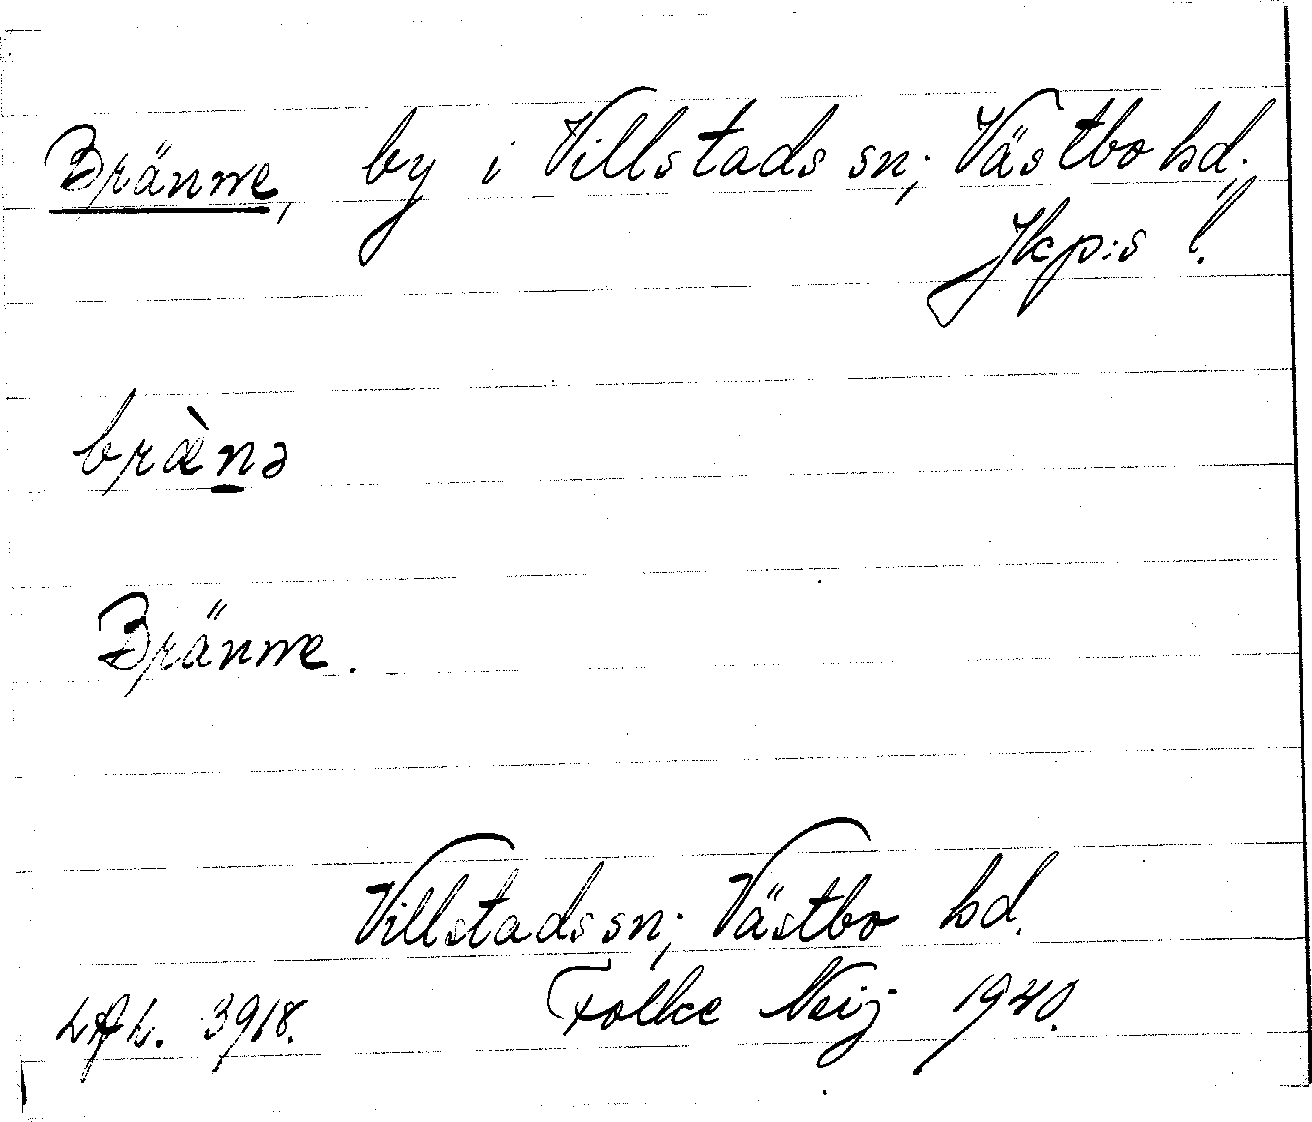 Bränne, by i Villstads sn; Västbo hd;
Jkp:s l.
bræ̀n̲ə
Bränne.
Villstads sn; Västbo hd.
LAL. 3918. Folke Neij 1940.